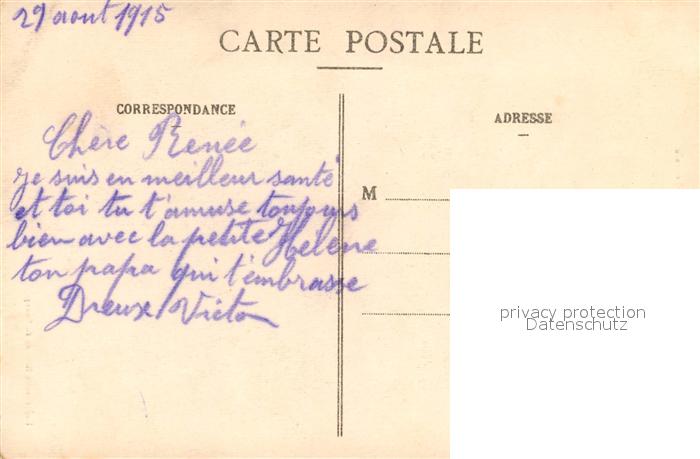 29 aout 1915
CARTE POSTALE
CORRESPONDANCE
ADRESSE
Chère Renée
je suis en meilleur santé
et toi tu t'amuse toujours
bien avec la petite Helene
ton papa qui t'embrasse
Dreux Victor
M
privacy protection
Datenschutz